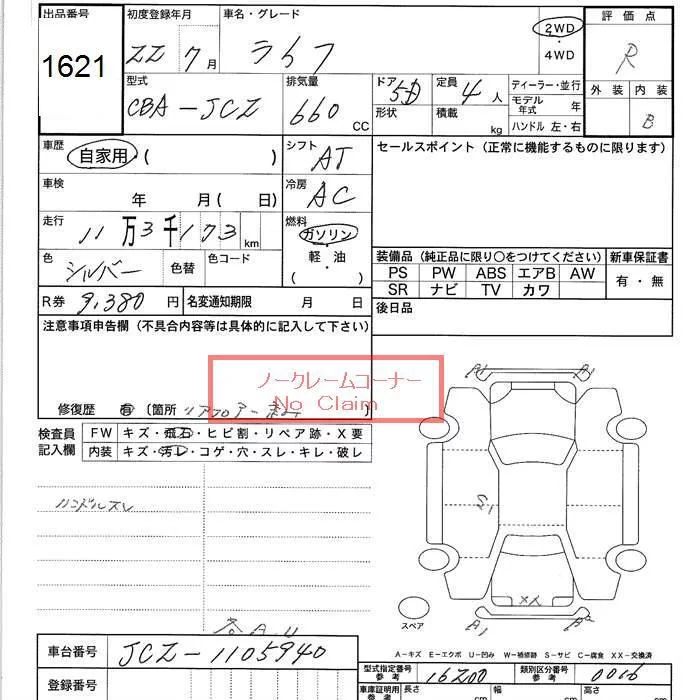 出品番号
1621
初度登録年月
22 7月
車名・グレード
ライフ
2WD
・
4WD
評価点
R
外装 内装
B
型式
CBA-JCZ
排気量
660 CC
ドア 5D
形状
定員 4 人
積載 kg
ディーラー・並行
モデル年式 年
ハンドル 左・右
車歴
自家用・( )
シフト
AT
セールスポイント (正常に機能するものに限ります)
車検
年 月( 日)
冷房
AC
走行
11万3千173 km
燃料
ガソリン
・
軽油
( )
色
シルバー
色替
色コード
装備品 (純正品に限り○をつけてください)
新車保証書
PS PW ABS エアB AW
SR ナビ TV カワ
有・無
R券 9,380 円
名変通知期限 月 日
後日品
注意事項申告欄 (不具合内容等は具体的に記入して下さい)
ノークレームコーナー
No Claim
修復歴 有 〔箇所 リアフロアー
検査員
記入欄
FW キズ・飛石・ヒビ割・リペア跡・X要
内装 キズ・汚レ・コゲ・穴・スレ・キレ・破レ
ハンドルスレ
A1 A1
S1
XA1
A1 A2
各A.U
スペア
A-キズ E-エクボ U-凹み W-補修跡 S-サビ C-腐食 XX-交換済
車台番号 JCZ-1105940
型式指定番号 参考 16200
類別区分番号 参考 0016
登録番号
車庫証明用 参考
長さ cm
幅 cm
高さ cm